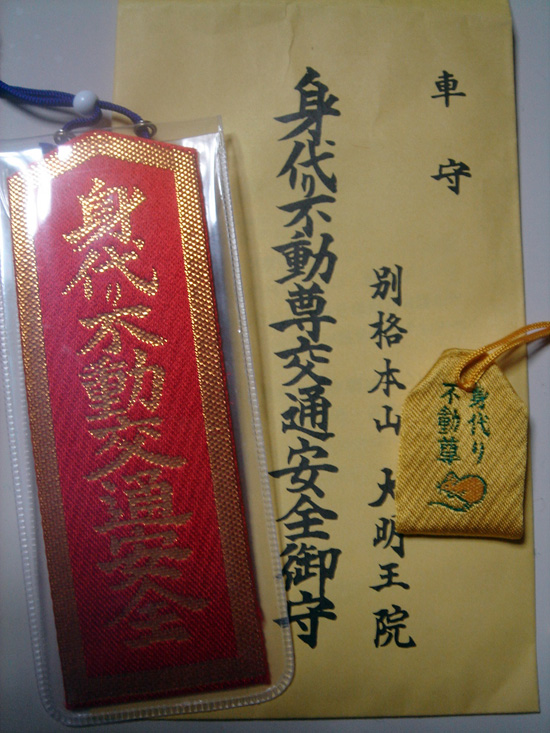 車守
別格本山 大明王院
身代り不動尊交通安全御守
身代り不動交通安全
身代り
不動尊